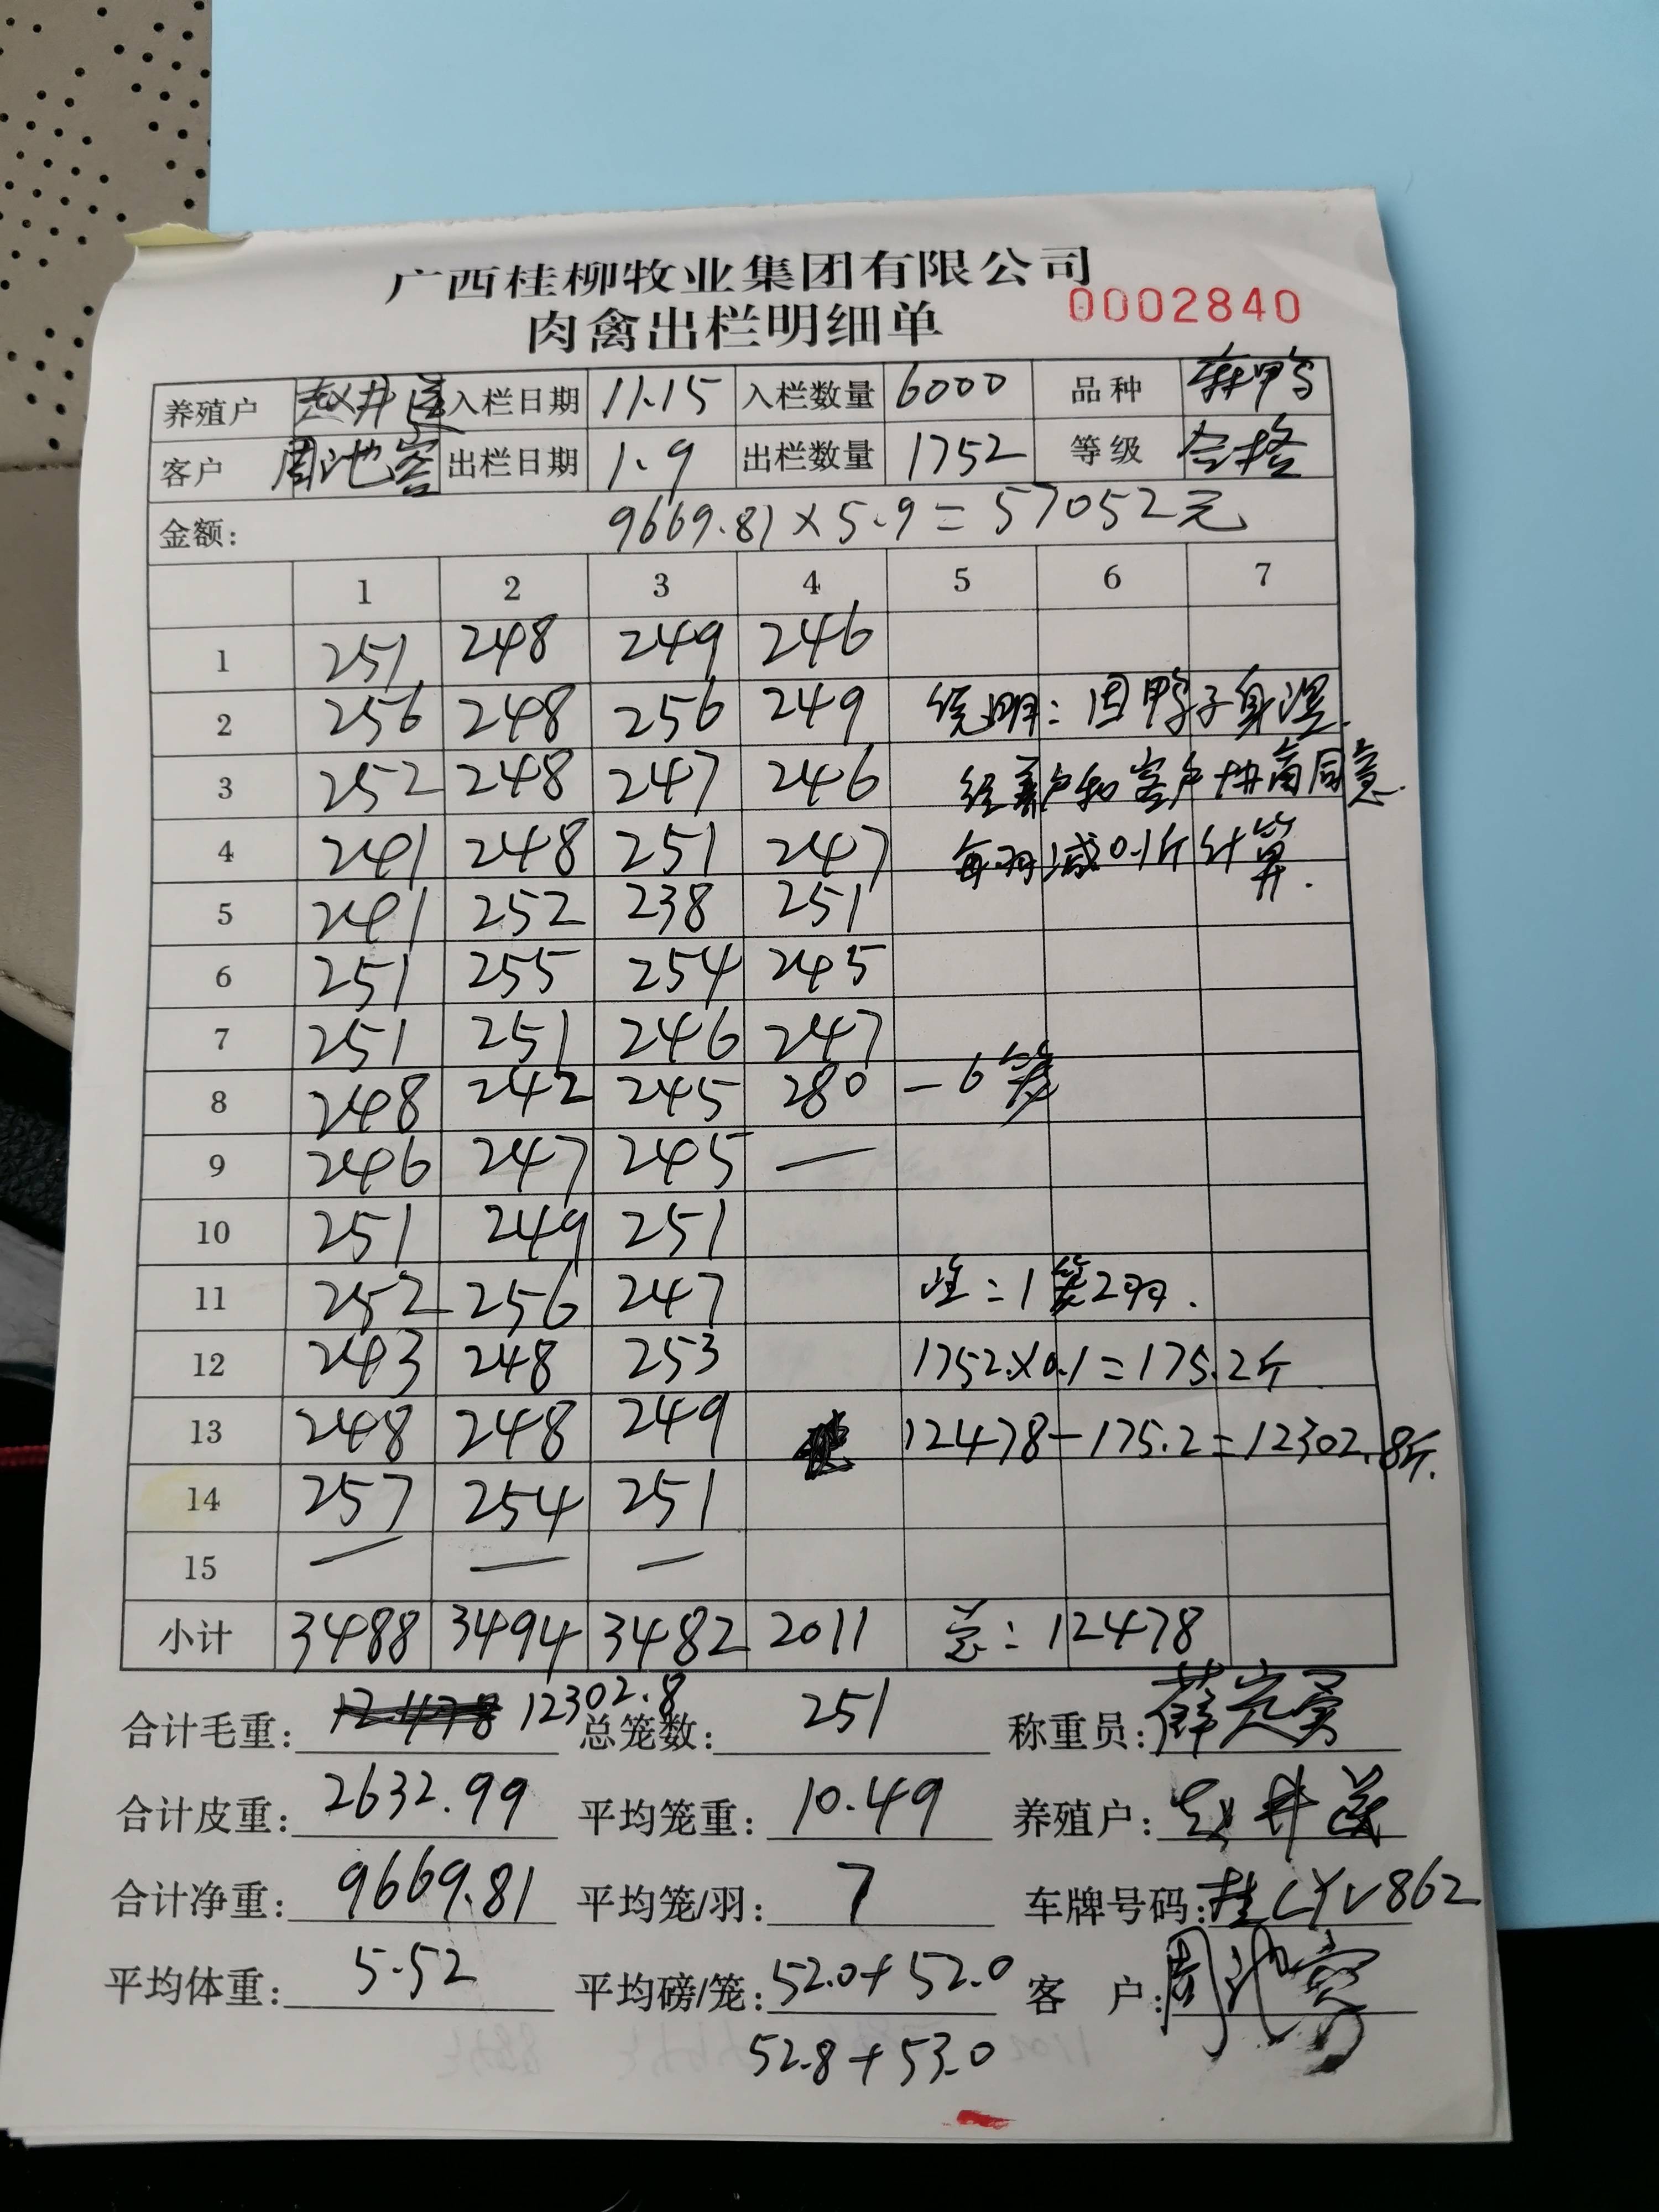 广西桂柳牧业集团有限公司
肉禽出栏明细单 0002840
养殖户 赵井莲 入栏日期 11.15 入栏数量 6000 品种 麻鸭
客户 周池 出栏日期 1.9 出栏数量 1752 等级 合格
金额: 9669.81×5.9=57052元
1 2 3 4 5 6 7
1 251 248 249 246
2 256 248 256 249 说明:因鸭子身湿
3 252 248 247 246 经养户和客户协商同意
4 241 248 251 247 每羽减0.1斤计算.
5 241 252 238 251
6 251 255 254 245
7 251 251 246 247
8 248 242 245 280 —6笼
9 246 247 245 —
10 251 249 251
11 252 256 247 :1笼2羽.
12 243 248 253 1752×0.1=175.2斤
13 248 248 249 12478-175.2=12302.8斤.
14 257 254 251
15 — — —
小计 3488 3494 3482 2011 总:12478
合计毛重: 12478 12302.8 总笼数: 251 称重员:
合计皮重: 2632.99 平均笼重: 10.49 养殖户: 赵井莲
合计净重: 9669.81 平均笼/羽: 7 车牌号码: 桂CYV862
平均体重: 5.52 平均磅/笼: 52.0+52.0 客 户: 周池
52.8+53.0